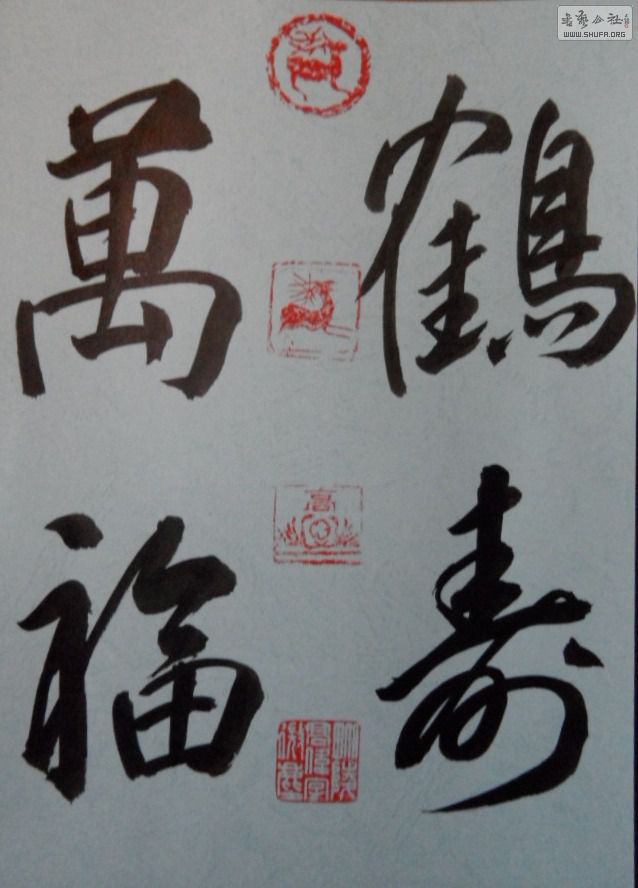 鶴寿
萬福
高
书艺公社
WWW.SHUFA.ORG